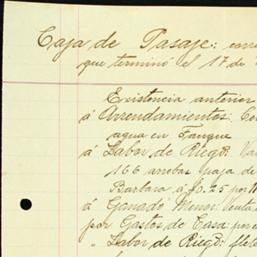 Caja de Pasaje: corr
que terminó el 17 de
Existencia anterior
á Arrendamientos. Co
agua en Tanque
á Labor de Riegº Va
166 arrobas paja de
Barbara á $0.25 por
á Ganado Menor. Venta
por Gastos de Casa por
" Labor de Riegº: flet